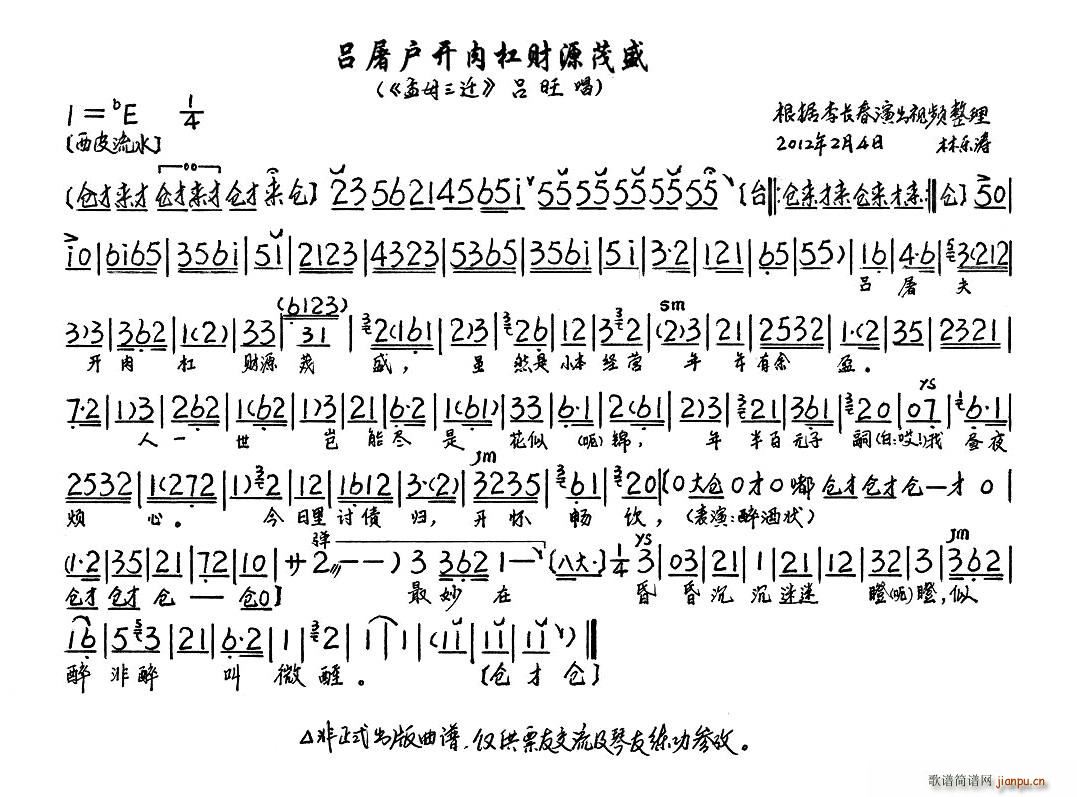 吕屠户开肉杠财源茂盛
(《孟母三迁》吕旺唱)
1=ᵇE 1/4
根据李长春演出视频整理
[西皮流水]
2012年2月4日 林乐涛
[仓才来才 仓才来才 仓才 来 仓] 23562145651 55555555 [台‖:仓来才来仓来才来:‖仓] 50|
i0|6i65|356i|5i|2123|4323|5365|356i|5i|3·2|121|65|55)|16|4·6|3(212|
吕 屠 夫
3)3|362|1(2)|33|31|2(161|2)3|26|12|32|(2)3|21|2532|1·(2|35|2321|
(6123)
sm
开 肉 杠 财源 茂 盛, 虽 然是 小本 经营 年 年有余 盈。
7·2|1)3|262|1(62|1)3|21|6·2|1(61)|33|6·1|2(61|2)3|21|361|20|07|6·1|
YS
人 一 世 岂 能尽 是 花似 (呃) 锦, 年 半百 元子 嗣(白:哎!)我 昼夜
2532|1(272|1)2|12|1612|3·(2)|3235|61|20|[0大仓 0才 0嘟 仓才仓才仓一才 0|
JM
烦 心。 今 日里 讨债 归, 开怀 畅 饮, (表演:醉酒状)
(1·2|35|21|72|10|サ2——) 3 362 1— [八大·]|1/4 3|03|21|1|21|12|32|3|362|
弹
YS
JM
仓才 仓才 仓 — — 仓0] 最妙 在 昏 昏沉 沉 迷迷 瞪(呃)瞪,似
16|53|21|6·2|1|2|1|1|1|(1i|1i|1i)‖
醉 非醉 叫 微醒。 [仓 才 仓]
△非正式出版曲谱,仅供票友交流及琴友练功参改。
歌谱简谱网 jianpu.cn